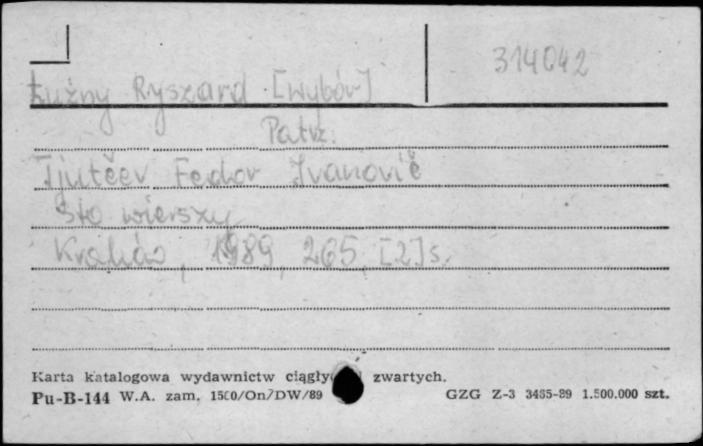 314042
Łużny Ryszard [Wybór]
Patrz:
Tjutčev Fedor Ivanovič
Sto wierszy
Kraków, 1989, 265, [2] s.
Karta katalogowa wydawnictw ciągły zwartych.
Pu-B-144 W.A. zam. 1500/On/DW/89 GZG Z-3 3485-89 1.500.000 szt.